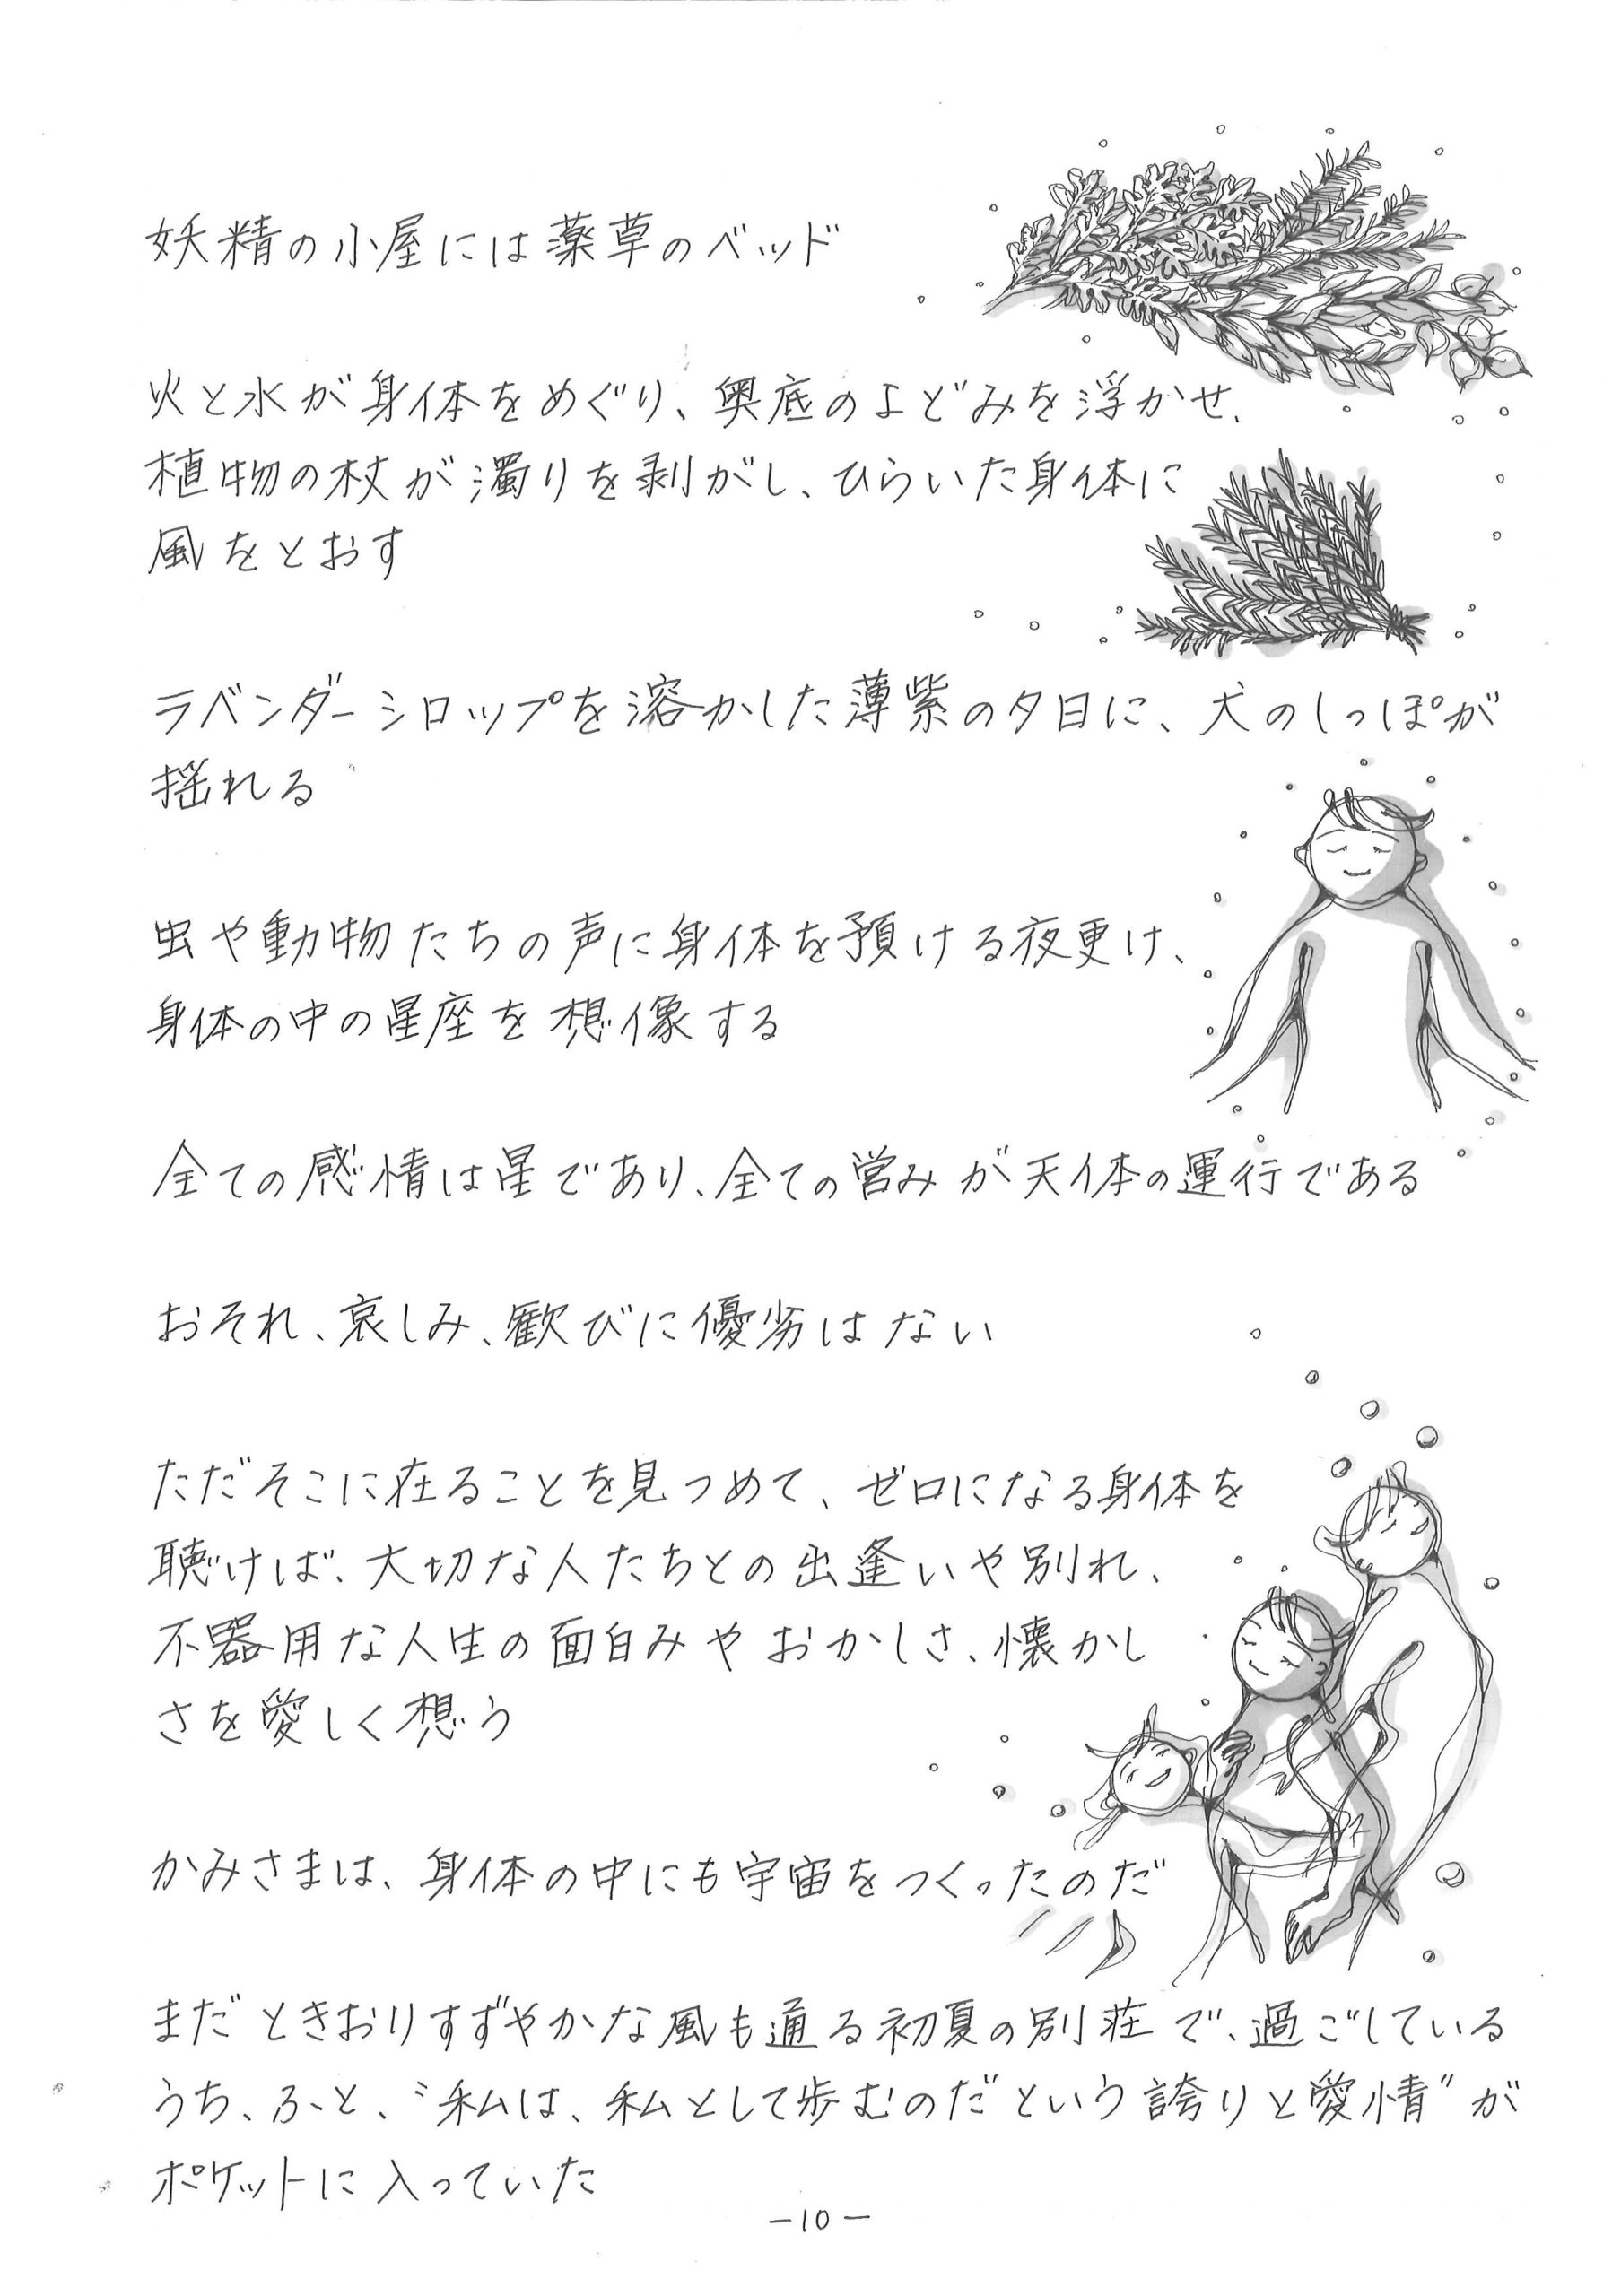 妖精の小屋には薬草のベッド
火と水が身体をめぐり、奥底のよどみを浮かせ、
植物の杖が濁りを剥がし、ひらいた身体に
風をとおす
ラベンダーシロップを溶かした薄紫の夕日に、犬のしっぽが
揺れる
虫や動物たちの声に身体を預ける夜更け、
身体の中の星座を想像する
全ての感情は星であり、全ての営みが天体の運行である
おそれ、哀しみ、歓びに優劣はない
ただそこに在ることを見つめて、ゼロになる身体を
聴けば、大切な人たちとの出逢いや別れ、
不器用な人生の面白みやおかしさ、懐かし
さを愛しく想う
かみさまは、身体の中にも宇宙をつくったのだ
まだときおりすずやかな風も通る初夏の別荘で、過ごしている
うち、ふと、〝私は、私として歩むのだという誇りと愛情〟が
ポケットに入っていた
－10－